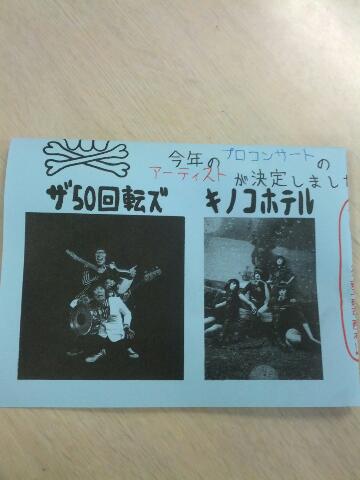 今年のプロコンサートの
アーティストが決定しました
ザ50回転ズ
キノコホテル